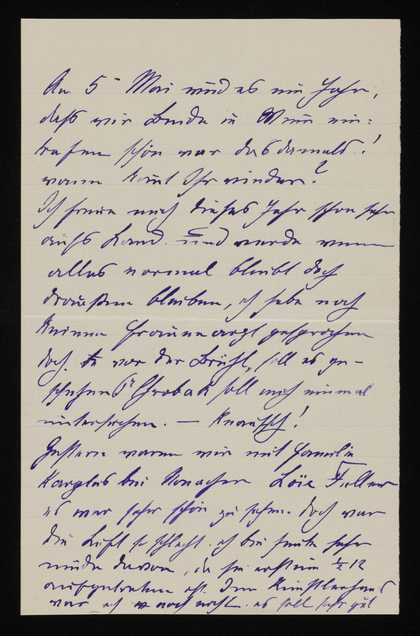 Am 5 Mai wird es ein Jahr,
daß wir Beide in Wien ein-
trafen schön war das damals!
wann kommt Ihr wieder?
Ich freue mich dieses Jahr schon sehr
aufs Land und werde wenn
alles normal bleibt doch
draußen bleiben, ich habe noch
keinen Frauenarzt gesprochen
doch vor der Brühl, soll es ge-
schehen Chrobak soll mich einmal
untersuchen. —
Gestern waren wir mit Familie
Karplus bei Ronacher Loïe Fuller
es war sehr schön zu sehen. doch war
die Luft so schlecht. ich bin heute sehr
müde davon, da sie erst um 12
aufgetreten ist. Im Künstlerhaus
war ich noch nicht. es soll sehr gut